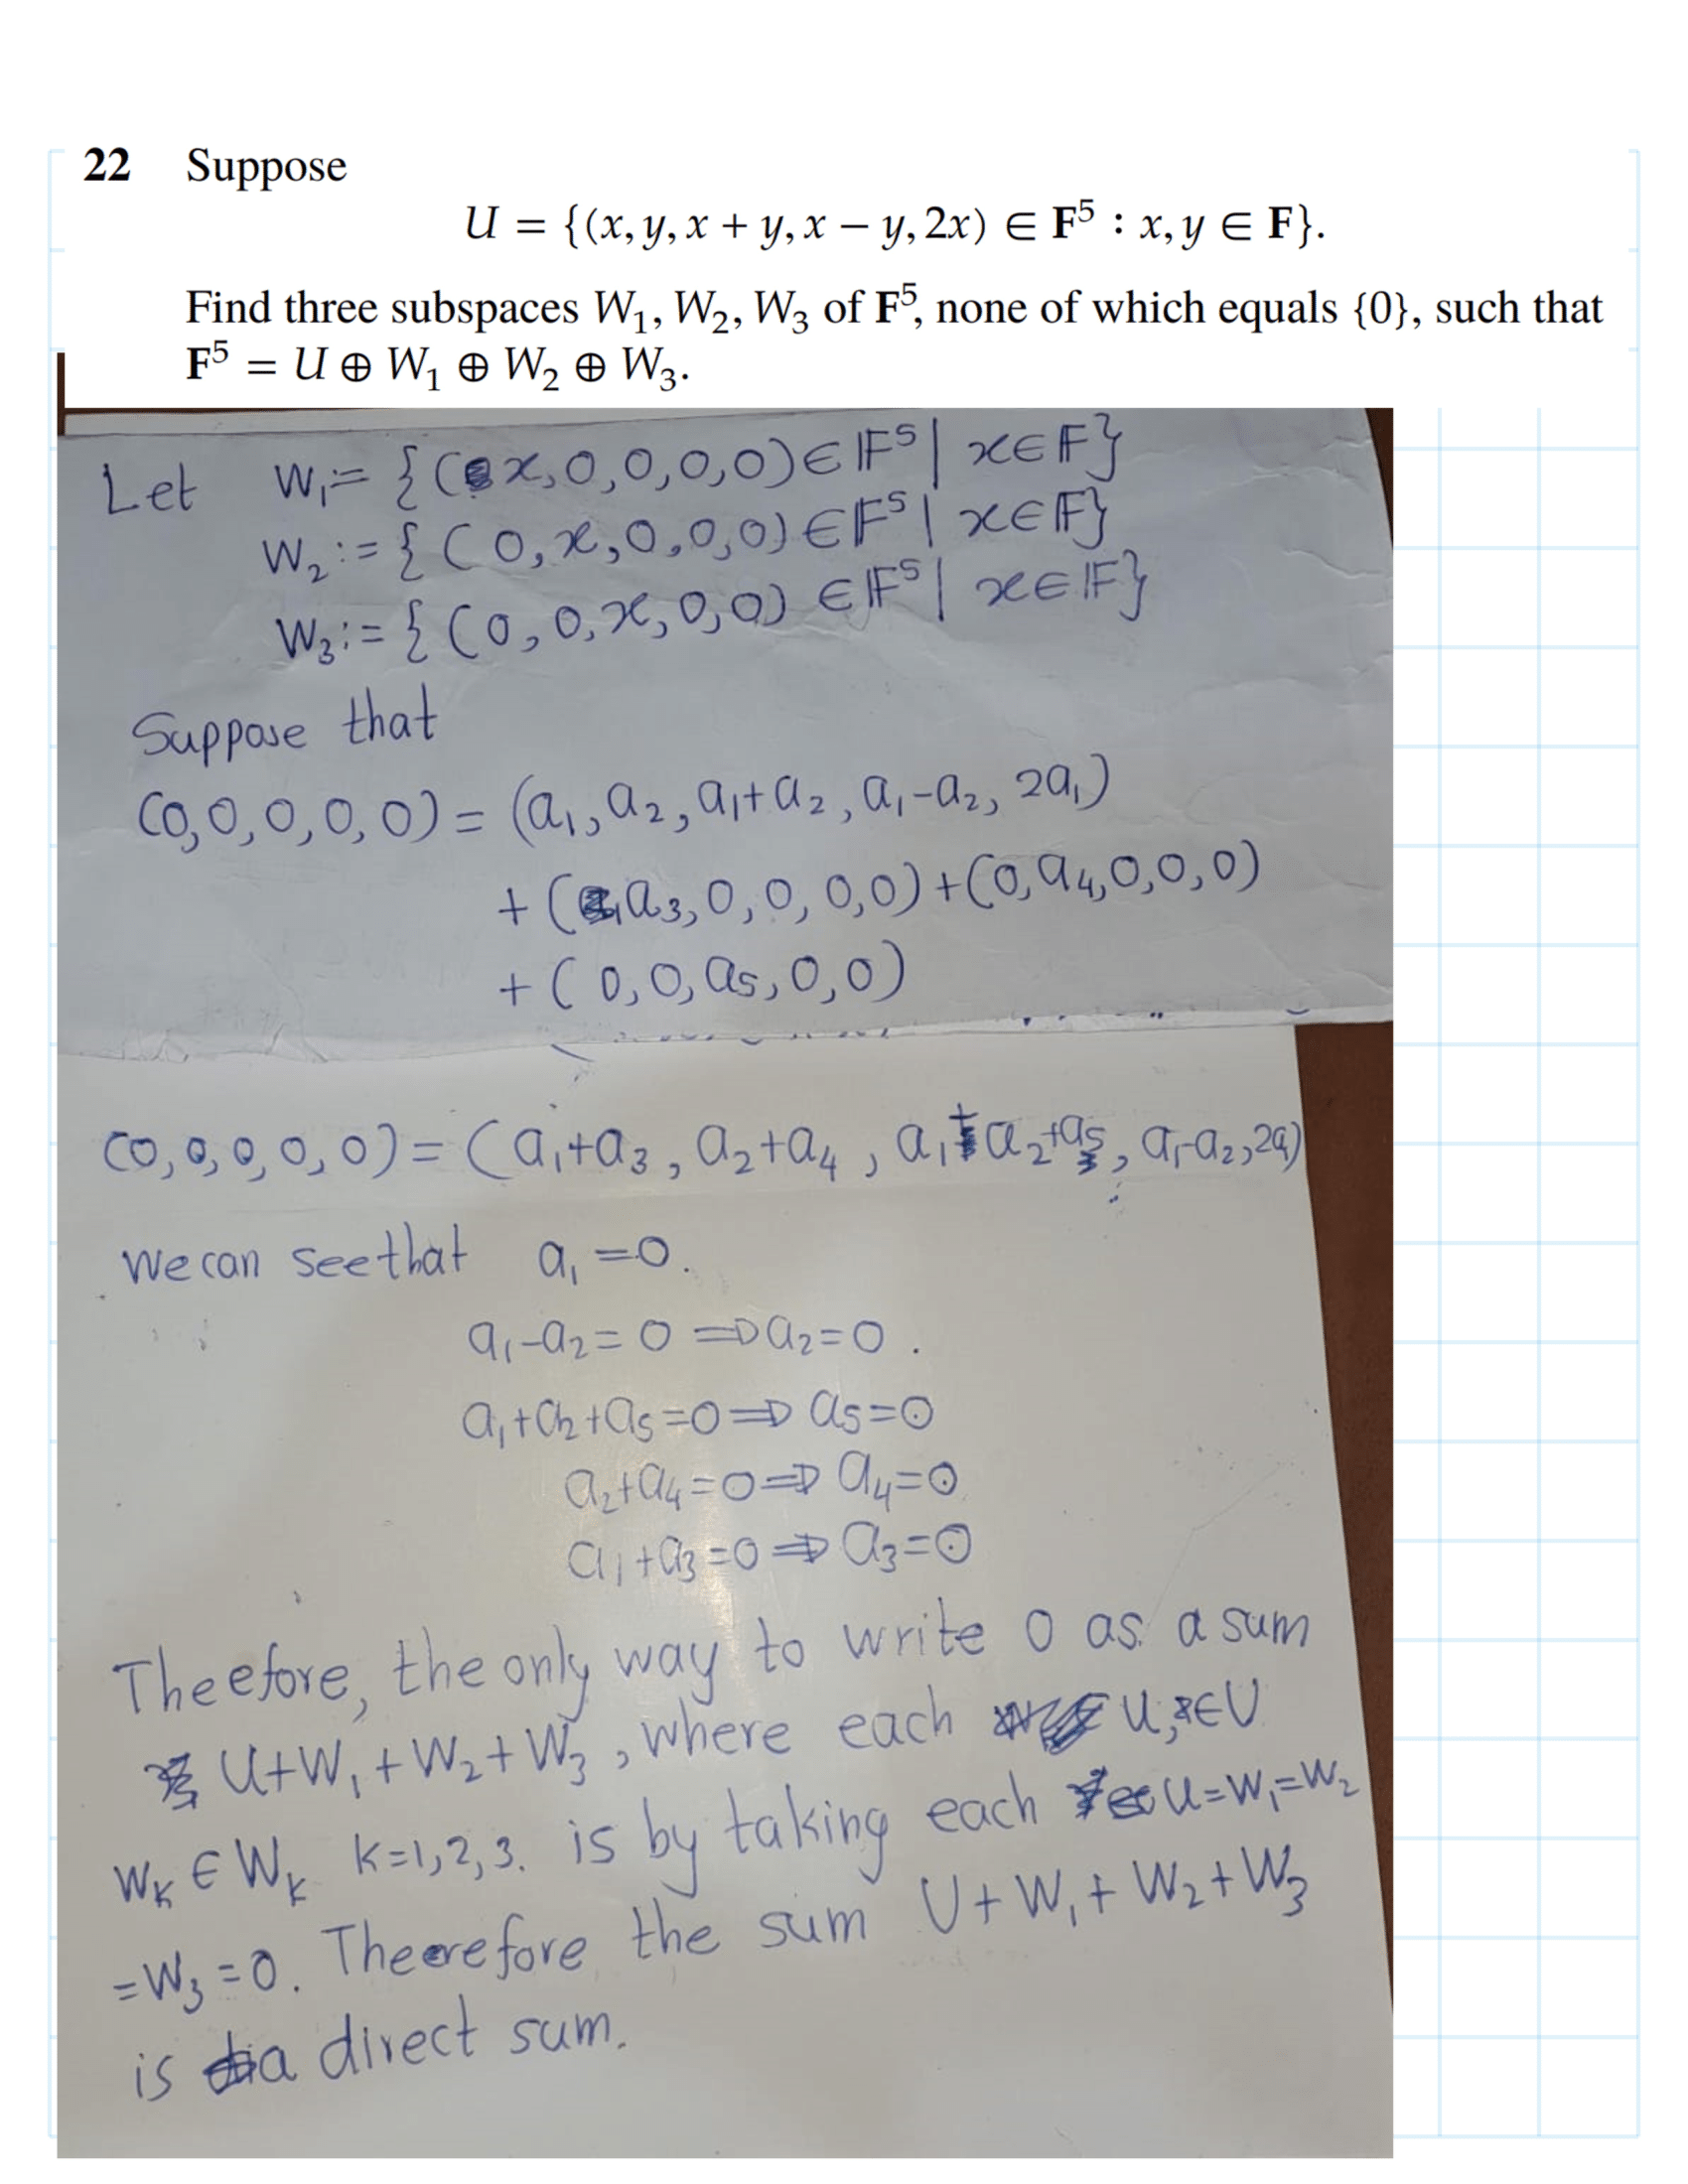 22 Suppose
U = {(x, y, x + y, x − y, 2x) ∈ F⁵ : x, y ∈ F}.
Find three subspaces W₁, W₂, W₃ of F⁵, none of which equals {0}, such that
F⁵ = U ⊕ W₁ ⊕ W₂ ⊕ W₃.
Let W₁:= {(x,0,0,0,0)∈𝔽⁵| x∈𝔽}
W₂:={(0,x,0,0,0)∈𝔽⁵| x∈𝔽}
W₃:={(0,0,x,0,0) ∈𝔽⁵| x∈𝔽}
Suppose that
(0,0,0,0,0)= (a₁,a₂,a₁+a₂,a₁-a₂,2a₁)
+(a₃,0,0,0,0)+(0,a₄,0,0,0)
+(0,0,a₅,0,0)
(0,0,0,0,0)=(a₁+a₃,a₂+a₄,a₁+a₂+a₅,a₁-a₂,2a₁)
We can see that a₁=0.
a₁-a₂=0 ⇒a₂=0.
a₁+a₂+a₅=0⇒a₅=0
a₂+a₄=0⇒a₄=0
a₁+a₃=0⇒a₃=0
Theefore, the only way to write 0 as a sum
u+w₁+w₂+w₃, where each u∈U
wₖ∈Wₖ k=1,2,3. is by taking each u=w₁=w₂
=w₃=0. Theerefore the sum U+W₁+W₂+W₃
is a direct sum.